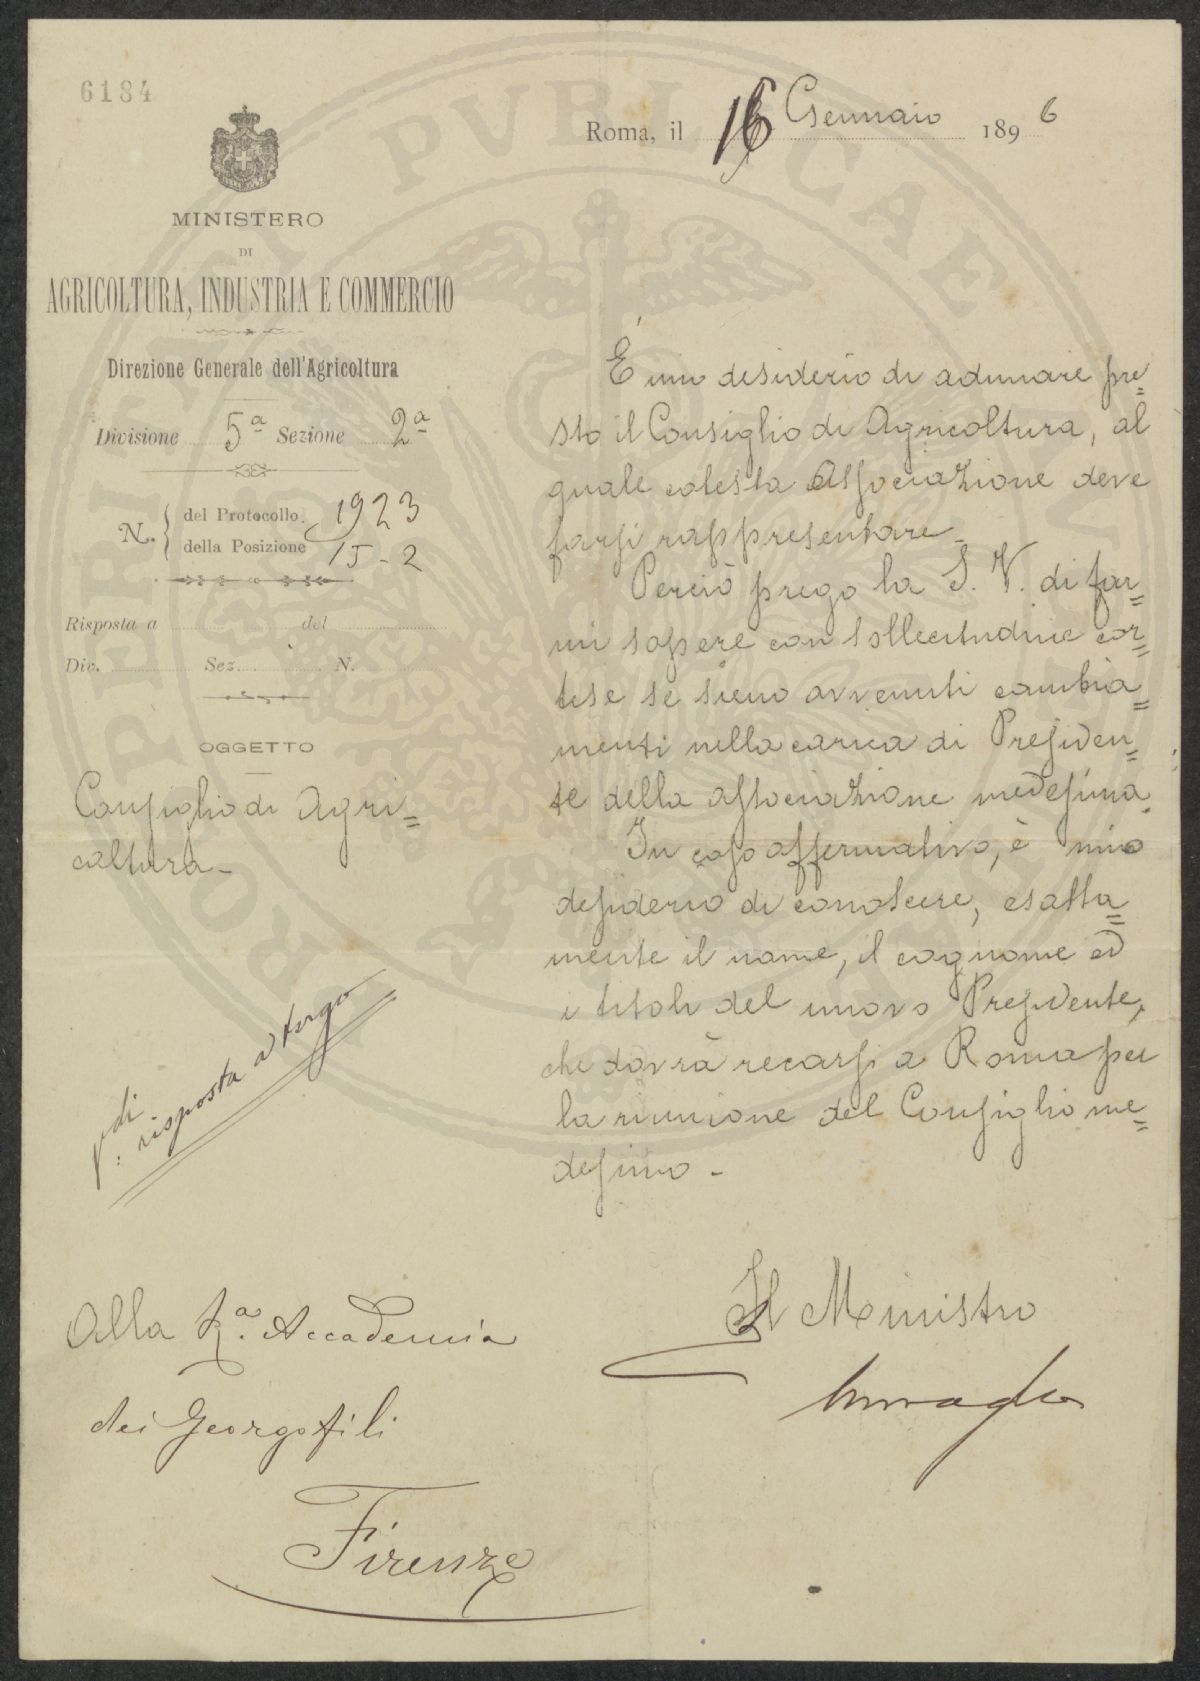 6184
Roma, il 16 Gennaio 1896
MINISTERO
DI
AGRICOLTURA, INDUSTRIA E COMMERCIO
Direzione Generale dell'Agricoltura
Divisione 5ª Sezione 2ª
N. { del Protocollo 1923
della Posizione 15-2
Risposta a del
Div. Sez. N.
OGGETTO
Consiglio di Agri=
coltura -
Vdi
risposta a tergo
È mio desiderio di adunare pre=
sto il Consiglio di Agricoltura, al
quale cotesta Associazione deve
farsi rappresentare -
Perciò prego la S. V. di far=
mi sapere con sollecitudine cor=
tese se sieno avvenuti cambia=
menti nella carica di Presiden=
te della associazione medesima.
In caso affermativo, è mio
desiderio di conoscere, esatta=
mente il nome, il cognome ed
i titoli del nuovo Presidente,
che dovrà recarsi a Roma per
la riunione del Consiglio me=
desimo -
Il Ministro
Alla R.ª Accademia
dei Georgofili
Firenze
PRO PRINCIPI PUBLICAE